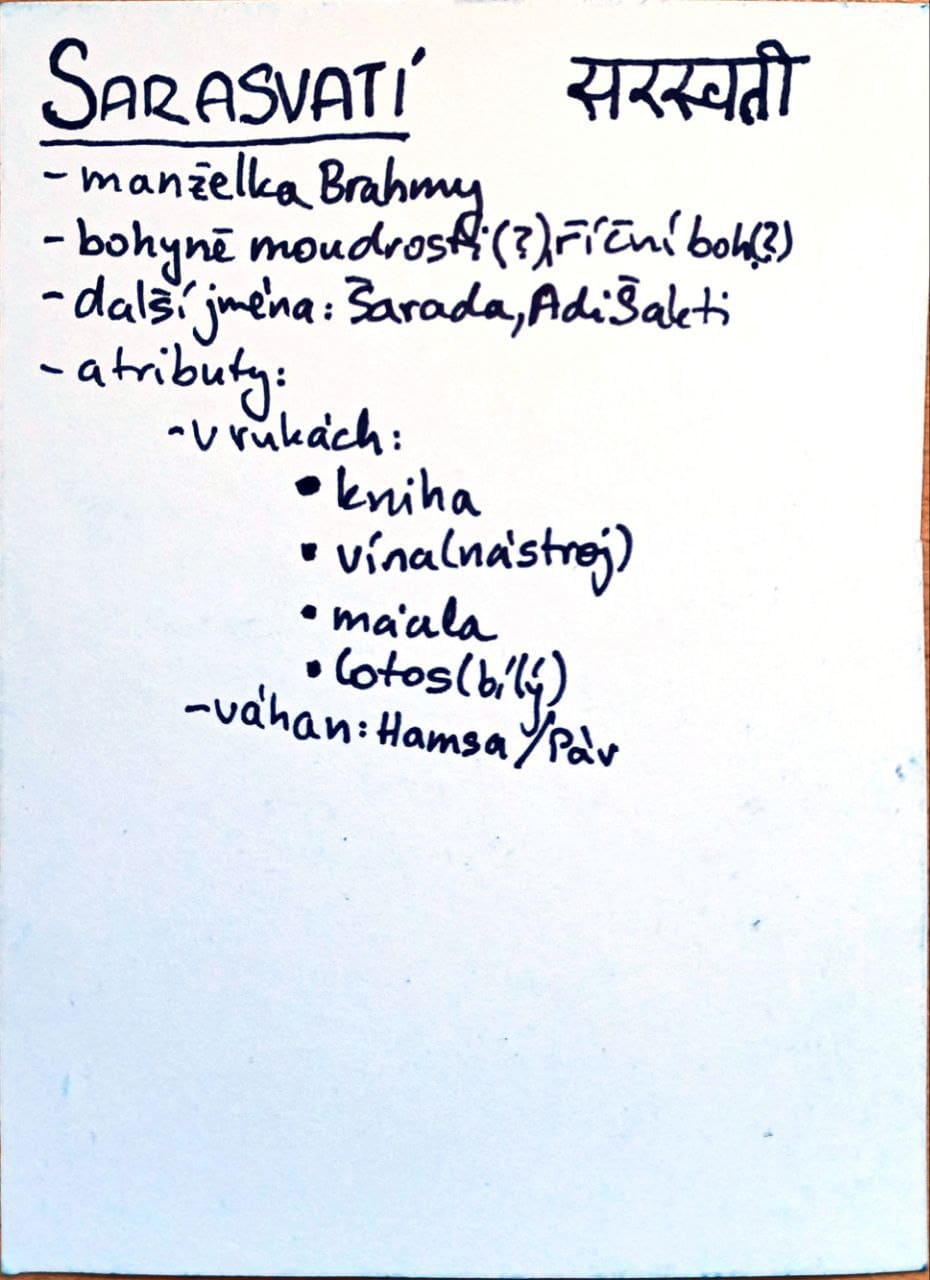 SARASVATÍ सरस्वती
- manželka Brahmy
- bohyně moudrosti (?), říční boh(?)
- další jména: Šarada, Adi Šakti
- atributy:
- v rukách:
• kniha
• vína (nástroj)
• máala
• lotos (bílý)
- váhan: Hamsa / Páv